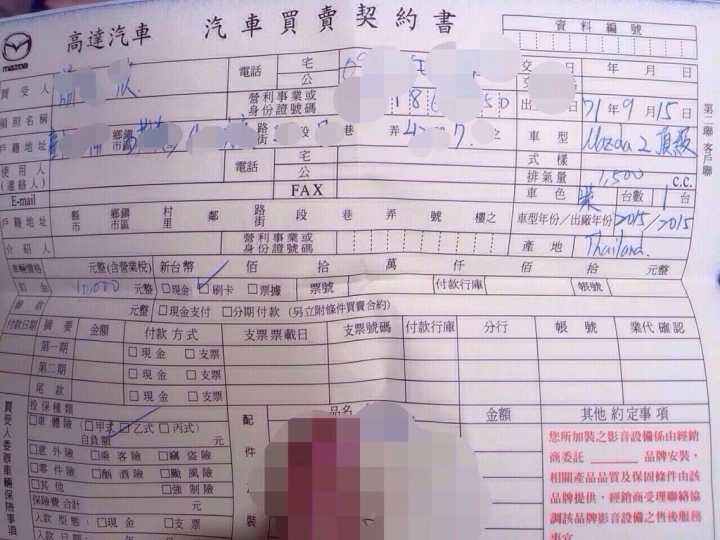 mazda 高達汽車 汽車買賣契約書
資料編號
買受人 電話 宅 公 交 日 年 月 日
牌照名稱 營利事業或身份證號碼 出 71年9月15日
戶籍地址 鄉鎮市區 路街 段 巷 弄 號 7 之 車型 Mazda 2 頂級
使用人(連絡人) 電話 宅 公 式樣
排氣量 1,500 c.c.
E-mail FAX 車色 紫 台數 1 台
戶籍地址 縣市 鄉鎮市區 村里 鄰 路街 段 巷 弄 號 樓之 車型年份/出廠年份 2015/2015
介紹人 營利事業或身份證號碼 產地 Thailand.
車輛價格 元整(含營業稅) 新台幣 佰 拾 萬 仟 佰 拾 元整
訂金 10,000 元整 □現金 □刷卡 □票據 票號 付款行庫 帳號
餘款 元整 □現金支付 □分期付款(另立附條件買賣合約)
付款日期 摘要 金額 付款方式 支票票載日 支票號碼 付款行庫 分行 帳號 業代確認
第一期 □現金 □支票
第二期 □現金 □支票
尾款 □現金 □支票
投保種類 品名 金額 其他約定事項
□車體險(□甲式 □乙式 □丙式)
自負額 元
□意外險 □乘客險 □竊盜險
□零件險 □酗酒險 □颱風險
□其他 □強制險
保險費合計 元
入款型態:□現金 □支票
入款日期:
買受人委辦車輛保險事項
配件 裝
您所加裝之影音設備係由經銷
商委託 品牌安裝,
相關產品品質及保固條件由該
品牌提供,經銷商受理聯絡協
調該品牌影音設備之售後服務
事宜
第二聯:客戶聯